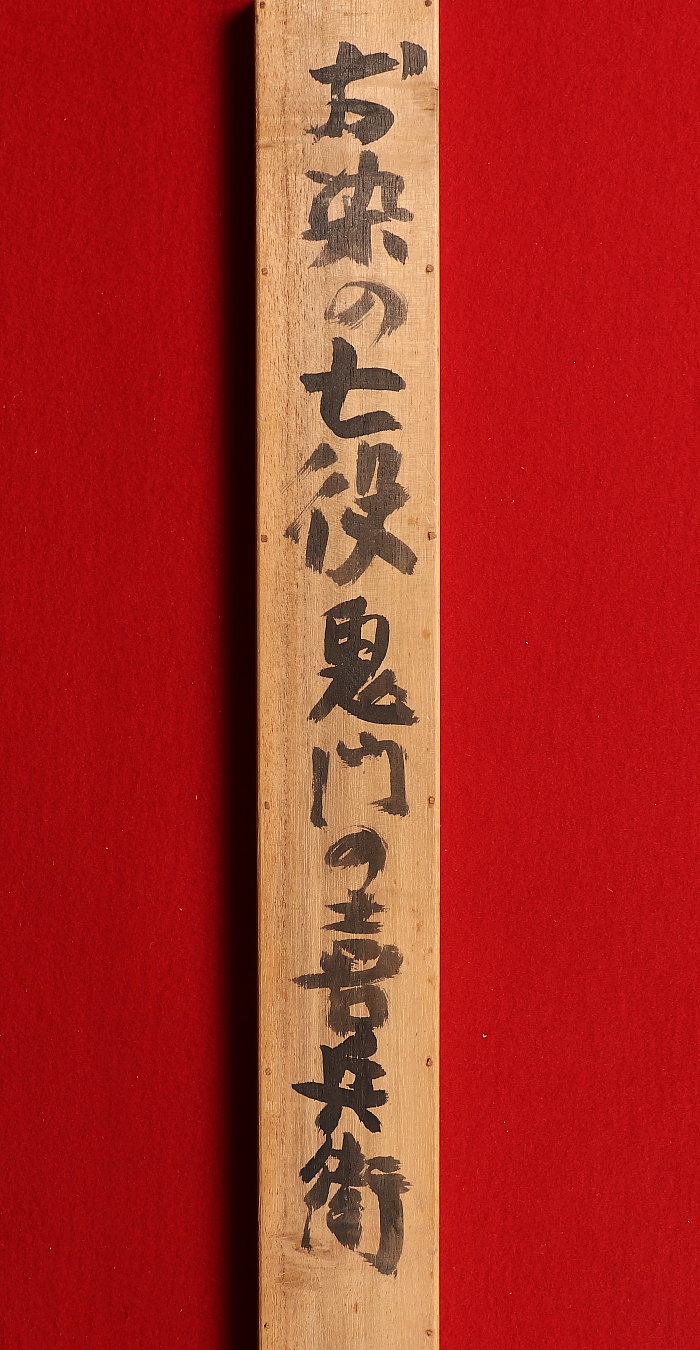 お染の七役 鬼門の喜兵衛